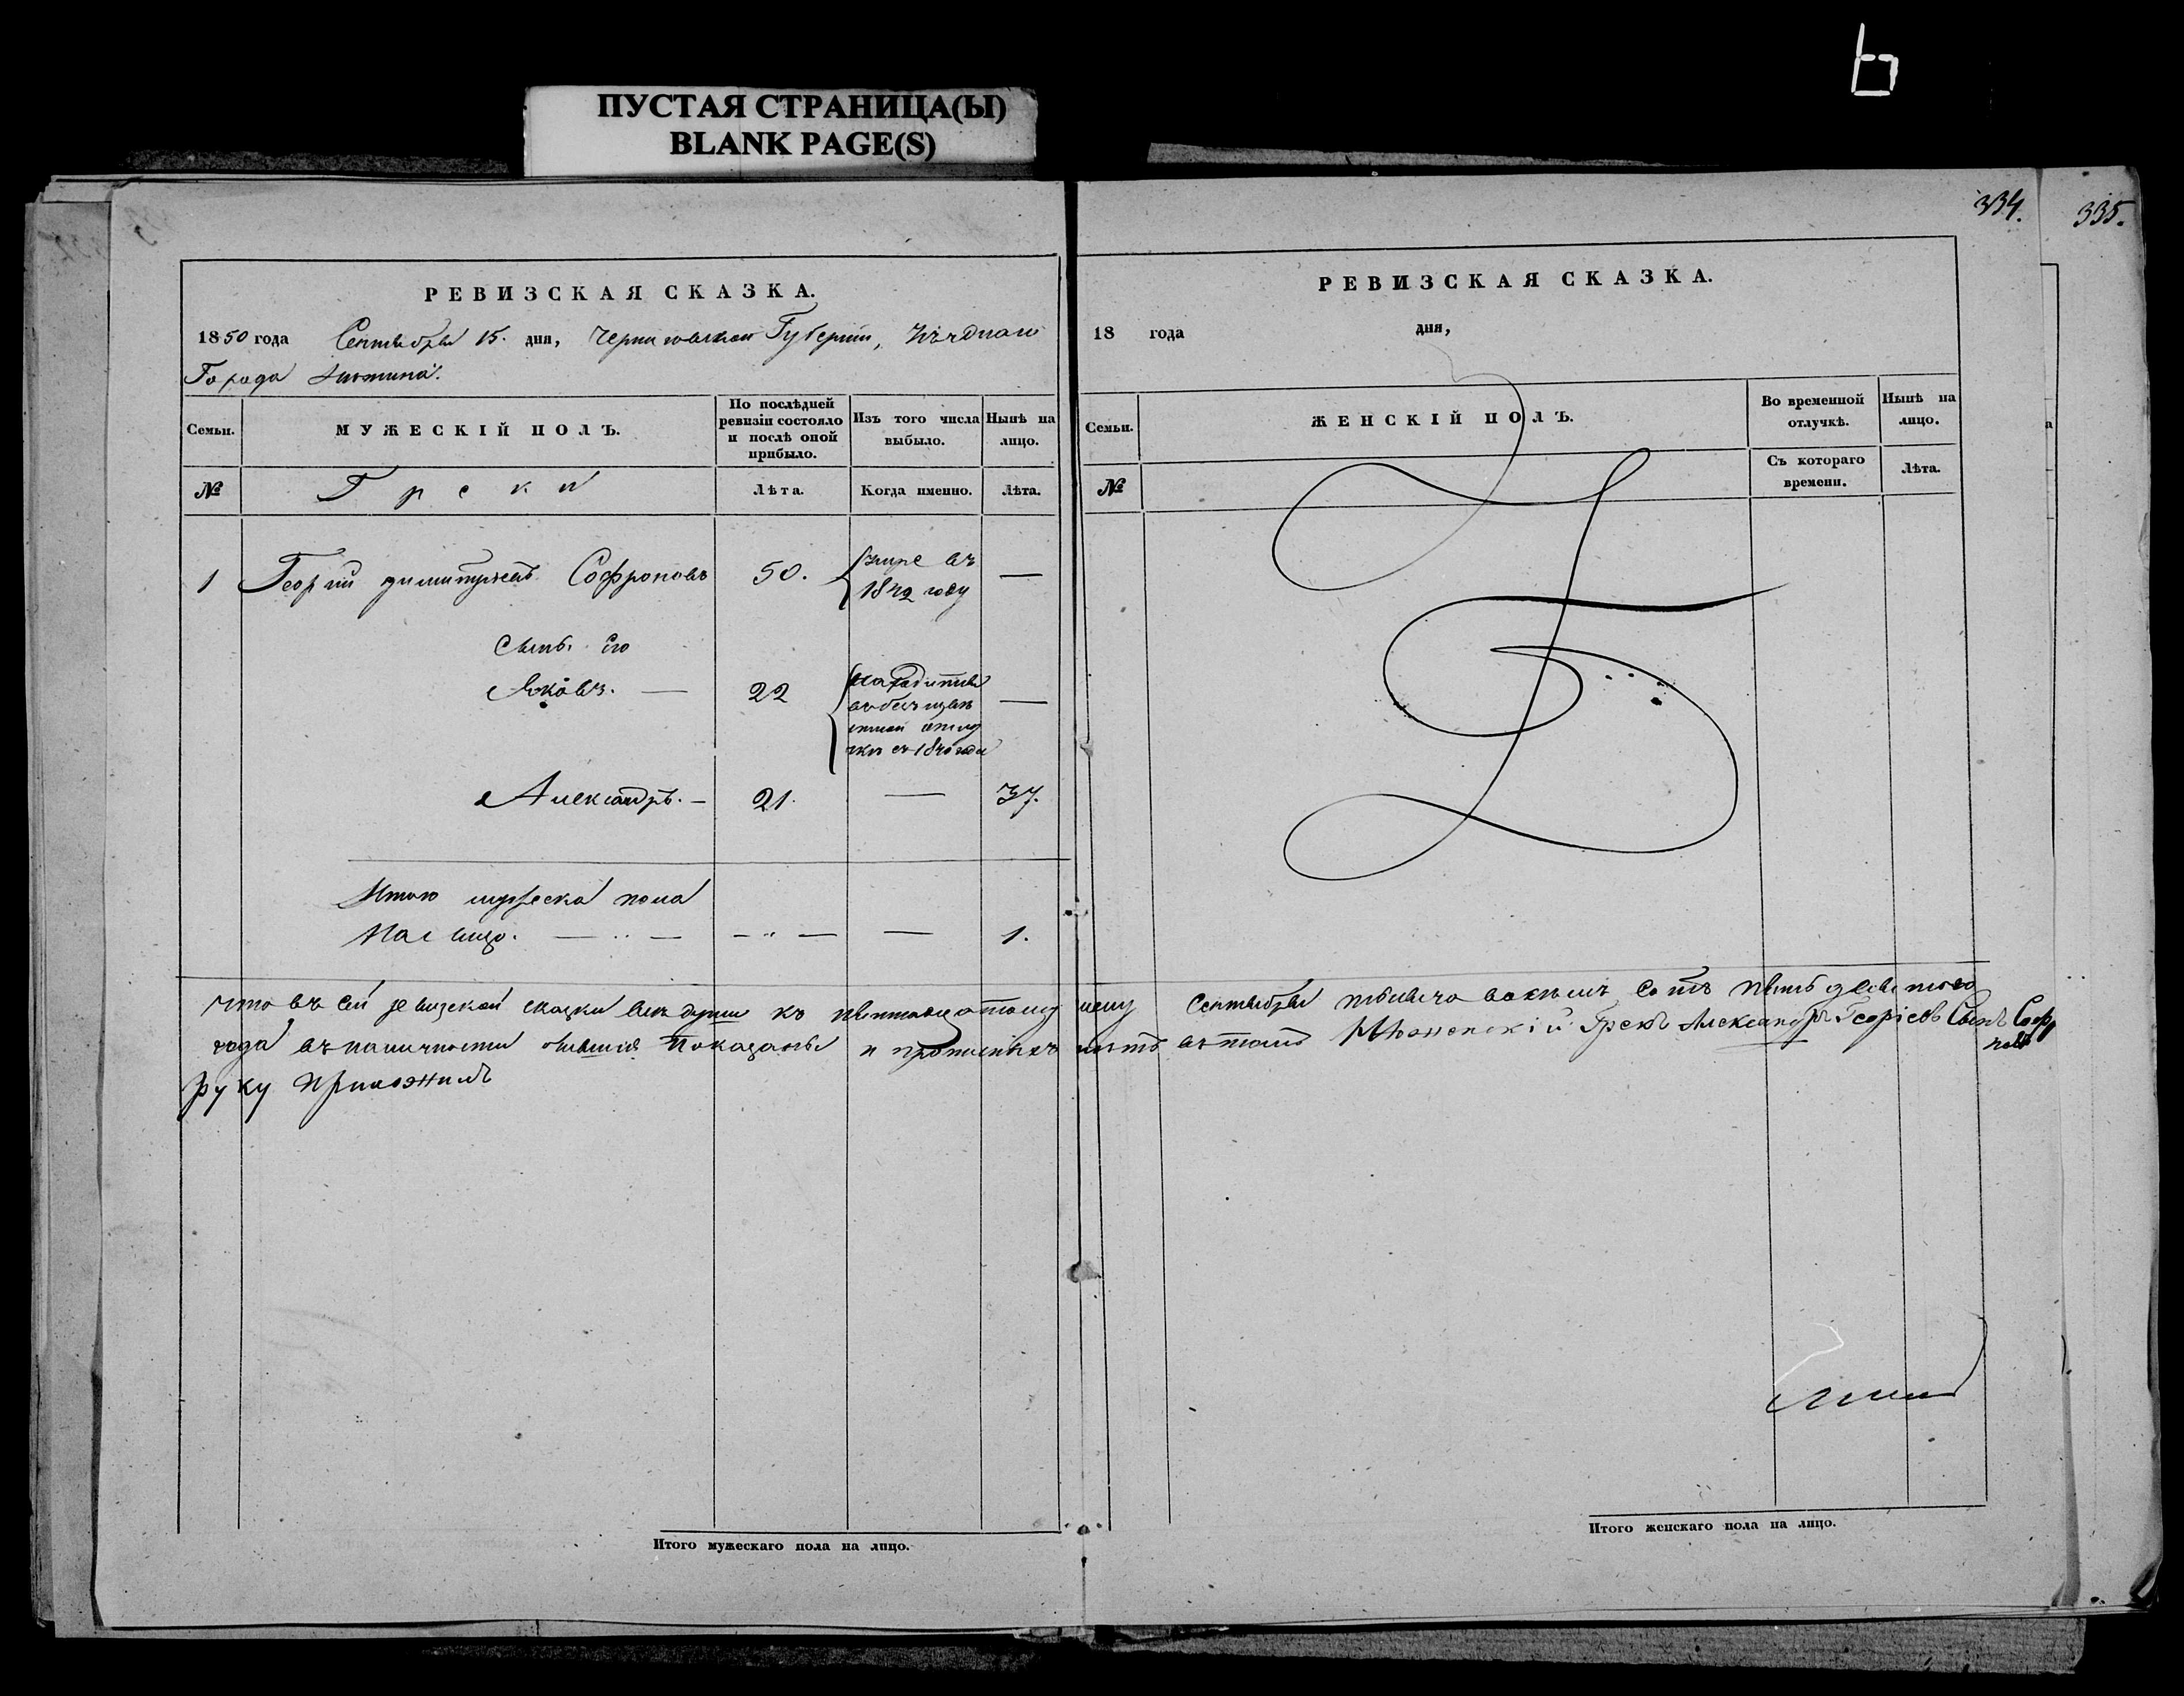 ПУСТАЯ СТРАНИЦА(Ы)
BLANK PAGE(S)
334.
335.
РЕВИЗСКАЯ СКАЗКА.
1850 года Сентября 15. дня, Черниговской Губернии, Уѣзднаго
Города Нѣжина.
Семьи.
МУЖЕСКІЙ ПОЛЪ.
По послѣдней
ревизіи состояло
и послѣ оной
прибыло.
Изъ того числа
выбыло.
Нынѣ на
лицо.
№
Греки
Лѣта.
Когда именно.
Лѣта.
1 Георгій Димитріевъ Софроновъ 50. умре въ 1842 году —
Сынъ его
Яковъ. — 22 находится въ безъизвѣстной отлучкѣ съ 1840 года —
Александръ. — 21. — 37.
Итого мужеска пола
На лицо. — — — 1.
РЕВИЗСКАЯ СКАЗКА.
18 года дня,
Семьи.
ЖЕНСКІЙ ПОЛЪ.
Во временной
отлучкѣ.
Нынѣ на
лицо.
№
Съ котораго
времени.
Лѣта.
Что въ сей ревизской сказки всѣ души къ пятнадцатому Сентября тысяча восемь сотъ пятьдесятого
года въ наличности бывшія показаны и прописныхъ нѣтъ въ томъ Нѣженскій Грекъ Александръ Георіевъ Сынъ Софроновъ
руку приложилъ
Итого мужескаго пола на лицо.
Итого женскаго пола на лицо.